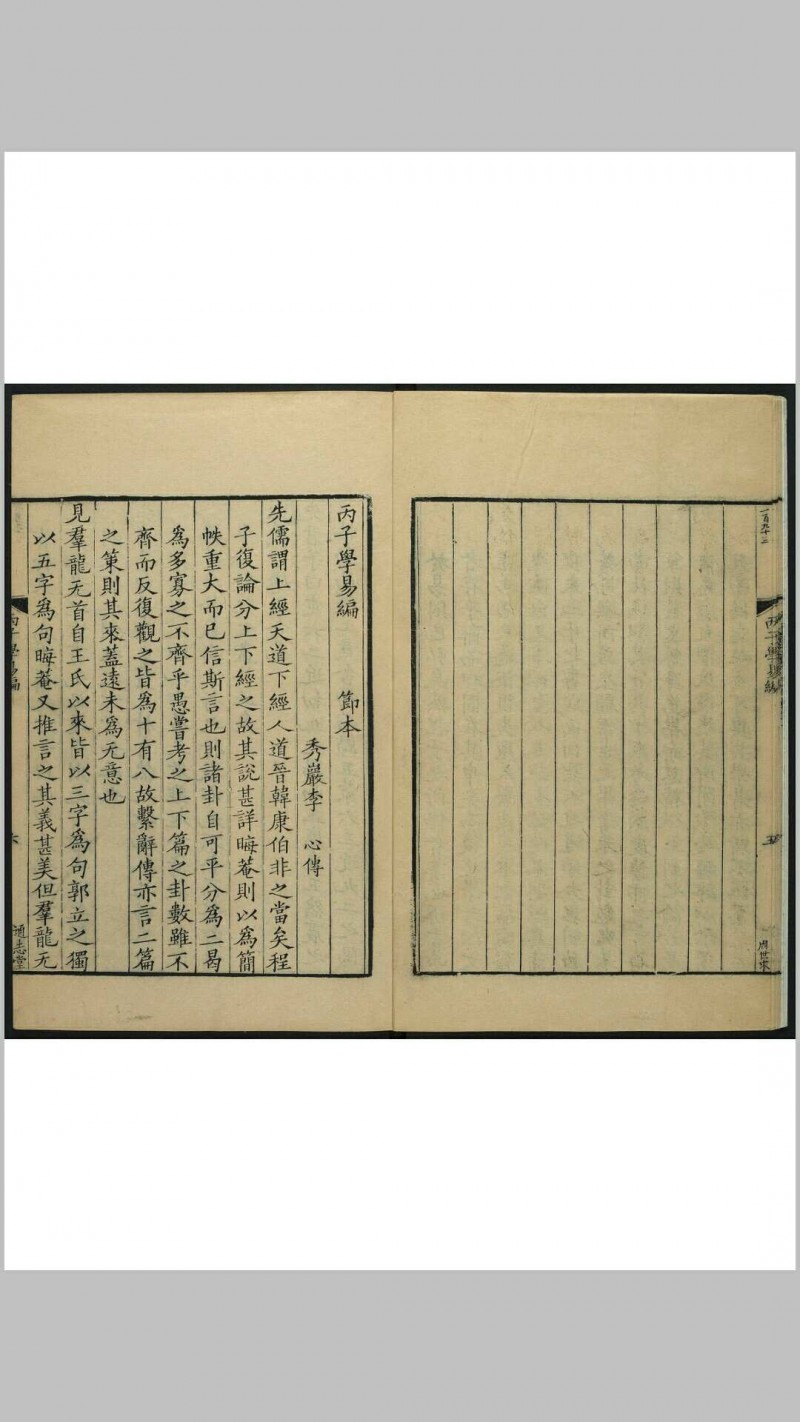 一百九十三
丙子學易編
五
周世來
丙子學易編 節本
秀巖李 心傳
先儒謂上經天道下經人道晉韓康伯非之當矣程
子復論分上下經之故其說甚詳晦菴則以為簡
帙重大而已信斯言也則諸卦自可平分為二曷
為多寡之不齊乎愚嘗考之上下篇之卦數雖不
齊而反復觀之皆為十有八故繫辭傳亦言二篇
之策則其來蓋遠未為无意也
見羣龍无首自王氏以來皆以三字為句郭立之獨
以五字為句晦菴又推言之其義甚美但羣龍无
丙子學易編
六
通志堂